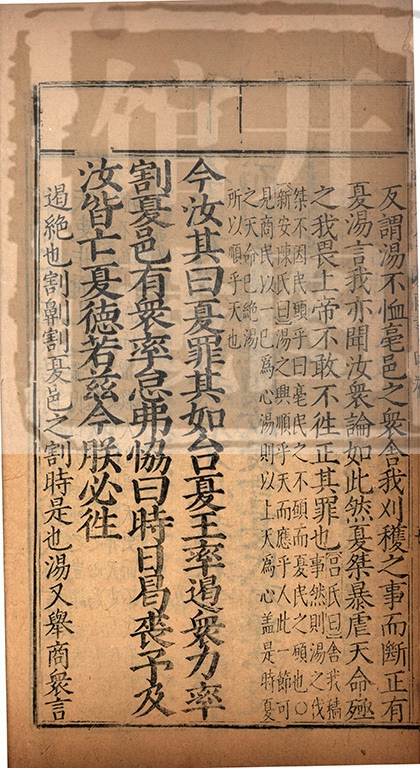 反謂湯不恤亳邑之衆舍我刈穫之事而斷正有
夏湯言我亦聞汝衆論如此然夏桀暴虐天命殛
之我畏上帝不敢不徃正其罪也
呂氏曰舍我穡
事然則湯之伐
桀不因民願乎曰亳民之不願而夏民之願也○
新安陳氏曰湯之興順乎天而應乎人此一節可
見商民以一己為心湯則以上天為心盖是時夏
之天命已絶湯
所以順乎天也
今汝其曰夏罪其如台夏王率遏衆力率
割夏邑有衆率怠弗協曰時日曷喪予及
汝皆亡夏德若兹今朕必徃
遏絶也割劓割夏邑之割時是也湯又舉商衆言